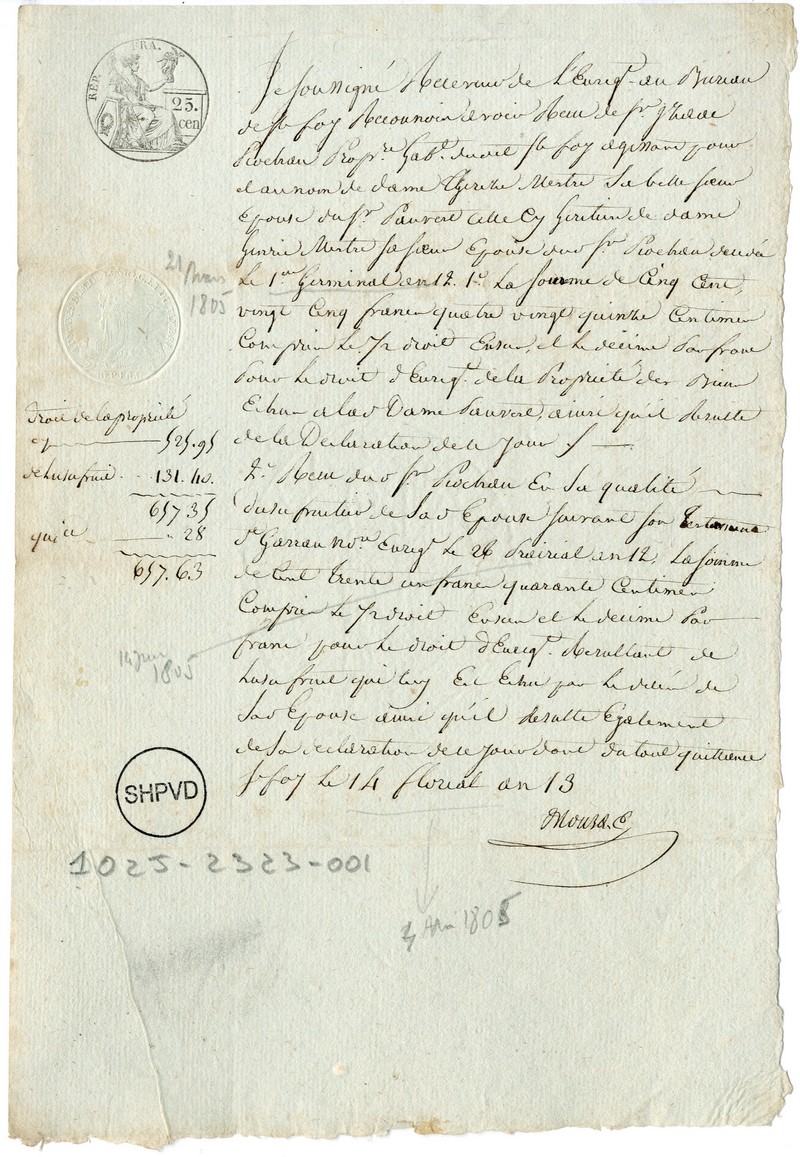 REP. FRA.
25.
cen
Je soussigné Receveur de L'Enregt. au Bureau
de Ste foy Reconnois avoir Recu de Sr
Rochau Propre. habt. du dit Ste foy agissant pour
et au nom de dame Mestre Sa belle Sœur
Epouse du Sr. Pauvert celle cy heritiere de dame
Mestre sa sœur Epouse du d Sr. Rochau decedée
Le 1er Germinal an 12. 1o. La somme de Cinq Cent
vingt Cinq francs quatre vingt quinze Centimes
Compris Le 1/2 droit Ensus, et le decime Par franc
Pour Le droit d'Enregt. de la Propriété des Biens
Echus a la d Dame Pauvert, ainsi qu'il Resulte
de la Declaration de ce Jour
2o. Recu du d Sr. Rochau En Sa qualité
d'usufruitier de Sa d Epouse suivant son testament
Garrau nore Enregt. Le 26 Prairial an 12, La somme
de Cent trente un francs quarante Centimes
Compris Le 1/2 droit Ensus et le decime Par
franc pour Le droit d'Enregt. Resultant de
Lusufruit qui luy Est Echu par Le décés de
Sa d Epouse ainsi qu'il Resulte Egalement
de Sa declaration de ce Jour dont du tout quittance
Ste foy Le 14 floréal an 13
21 mars
1805
droit de la propriété
cy 525.95
de lusufruit .. 131.40.
657.35
quice 28
657.63
14 juin
1805
SHPVD
1025-2323-001
1805